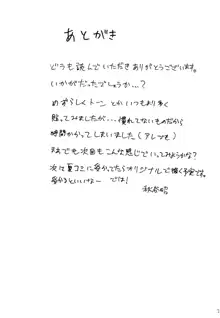 あとがき
どうも読んでいただきありがとうございます。
いかがだったでしょうか…?
めずらしくトーンとかいつもより多く
貼ってみましたが…慣れてないものだから
時間かかってしまいました(アレでも)
でも次回もこんな感じでいってみようかな?
次は夏コミに受かってたらオリジナルで描く予定です。
受かるといいなー では!